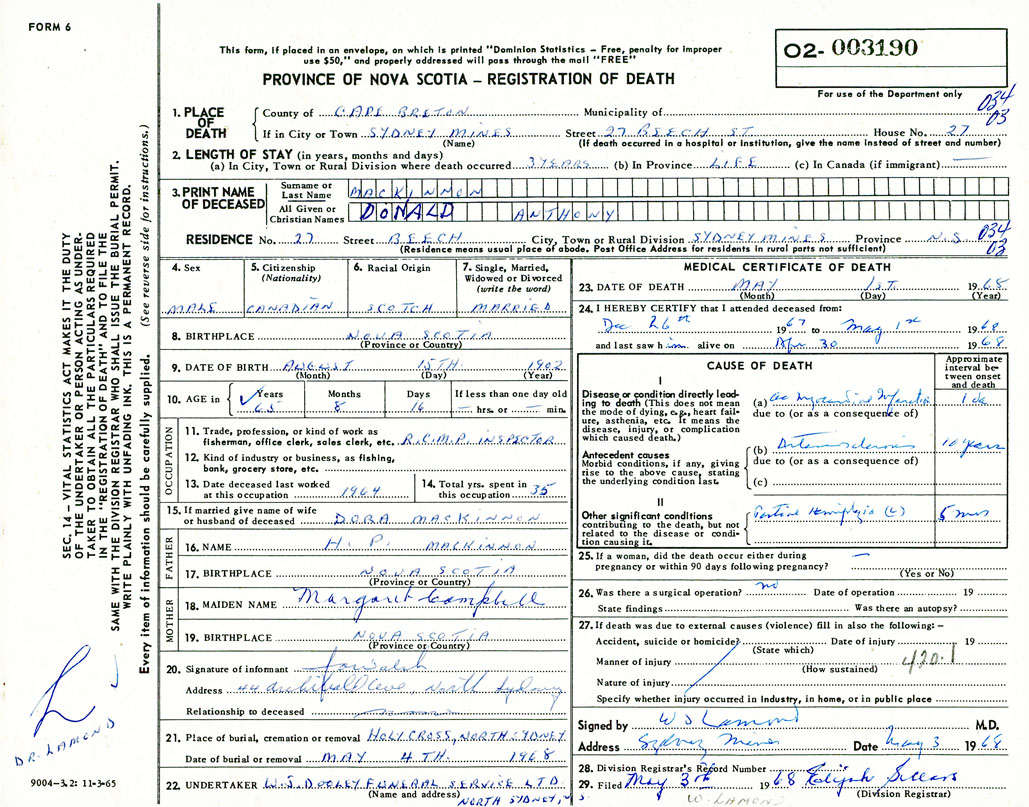 FORM 6
This form, if placed in an envelope, on which is printed "Dominion Statistics – Free, penalty for improper
use $50," and properly addressed will pass through the mail "FREE"
PROVINCE OF NOVA SCOTIA – REGISTRATION OF DEATH
02- 003190
For use of the Department only
034
03
1. PLACE OF DEATH
County of CAPE BRETON Municipality of
If in City or Town SYDNEY MINES Street 27 BEECH ST House No. 27
(Name) (If death occurred in a hospital or institution, give the name instead of street and number)
2. LENGTH OF STAY (in years, months and days)
(a) In City, Town or Rural Division where death occurred 3 YEARS (b) In Province LIFE (c) In Canada (if immigrant) —
3. PRINT NAME OF DECEASED
Surname or Last Name MACKINNON
All Given or Christian Names DONALD ANTHONY
RESIDENCE No. 27 Street BEECH City, Town or Rural Division SYDNEY MINES Province N.S
034
03
(Residence means usual place of abode. Post Office Address for residents in rural parts not sufficient)
4. Sex
MALE
5. Citizenship
(Nationality)
CANADIAN
6. Racial Origin
SCOTCH
7. Single, Married,
Widowed or Divorced
(write the word)
MARRIED
8. BIRTHPLACE NOVA SCOTIA
(Province or Country)
9. DATE OF BIRTH AUGUST 15TH 1902
(Month) (Day) (Year)
10. AGE in Years 65 Months 8 Days 16 If less than one day old
— hrs. or — min.
OCCUPATION
11. Trade, profession, or kind of work as
fisherman, office clerk, sales clerk, etc. R.C.M.P. INSPECTOR
12. Kind of industry or business, as fishing,
bank, grocery store, etc.
13. Date deceased last worked
at this occupation 1964
14. Total yrs. spent in
this occupation 35
15. If married give name of wife
or husband of deceased DORA MACKINNON
FATHER
16. NAME H. P. MACKINNON
17. BIRTHPLACE NOVA SCOTIA
(Province or Country)
MOTHER
18. MAIDEN NAME Margaret Campbell
19. BIRTHPLACE NOVA SCOTIA
(Province or Country)
20. Signature of informant
Address 44 Archibald Ave, North Sydney
Relationship to deceased
21. Place of burial, cremation or removal HOLY CROSS, NORTH SYDNEY
Date of burial or removal MAY 4TH. 1968
22. UNDERTAKER W.S. DOOLEY FUNERAL SERVICE LTD.
(Name and address) NORTH SYDNEY, N
S.
MEDICAL CERTIFICATE OF DEATH
23. DATE OF DEATH MAY 1ST. 1968
(Month) (Day) (Year)
24. I HEREBY CERTIFY that I attended deceased from:
Dec 26th 1967 to May 1st 1968
and last saw him alive on Apr. 30 1968
CAUSE OF DEATH
Approximate
interval be-
tween onset
and death
I
Disease or condition directly lead-
ing to death (This does not mean
the mode of dying, e.g., heart fail-
ure, asthenia, etc. It means the
disease, injury, or complication
which caused death.)
(a) Ac Myocardial Infarction 1 da
due to (or as a consequence of)
Antecedent causes
Morbid conditions, if any, giving
rise to the above cause, stating
the underlying condition last.
(b) Arteriosclerosis 10 years
due to (or as a consequence of)
(c)
II
Other significant conditions
contributing to the death, but not
related to the disease or condi-
tion causing it.
Hemiplegia (L) 5 mos
25. If a woman, did the death occur either during
pregnancy or within 90 days following pregnancy? —
(Yes or No)
26. Was there a surgical operation? no Date of operation 19
State findings Was there an autopsy?
27. If death was due to external causes (violence) fill in also the following: –
Accident, suicide or homicide? Date of injury 19
(State which)
Manner of injury 420.1
(How sustained)
Nature of injury
Specify whether injury occurred in Industry, in home, or in public place
Signed by W S Lamond M.D.
Address Sydney Mines Date May 3 1968
28. Division Registrar's Record Number
29. Filed May 3rd 1968 Elijah Sillars
(Division Registrar)
W. LAMOND
SEC. 14 – VITAL STATISTICS ACT MAKES IT THE DUTY
OF THE UNDERTAKER OR PERSON ACTING AS UNDER-
TAKER TO OBTAIN ALL THE PARTICULARS REQUIRED
IN THE "REGISTRATION OF DEATH" AND TO FILE THE
SAME WITH THE DIVISION REGISTRAR WHO SHALL ISSUE THE BURIAL PERMIT.
WRITE PLAINLY WITH UNFADING INK. THIS IS A PERMANENT RECORD.
Every item of information should be carefully supplied. (See reverse side for instructions.)
DR. LAMOND
9004-3.2: 11-3-65